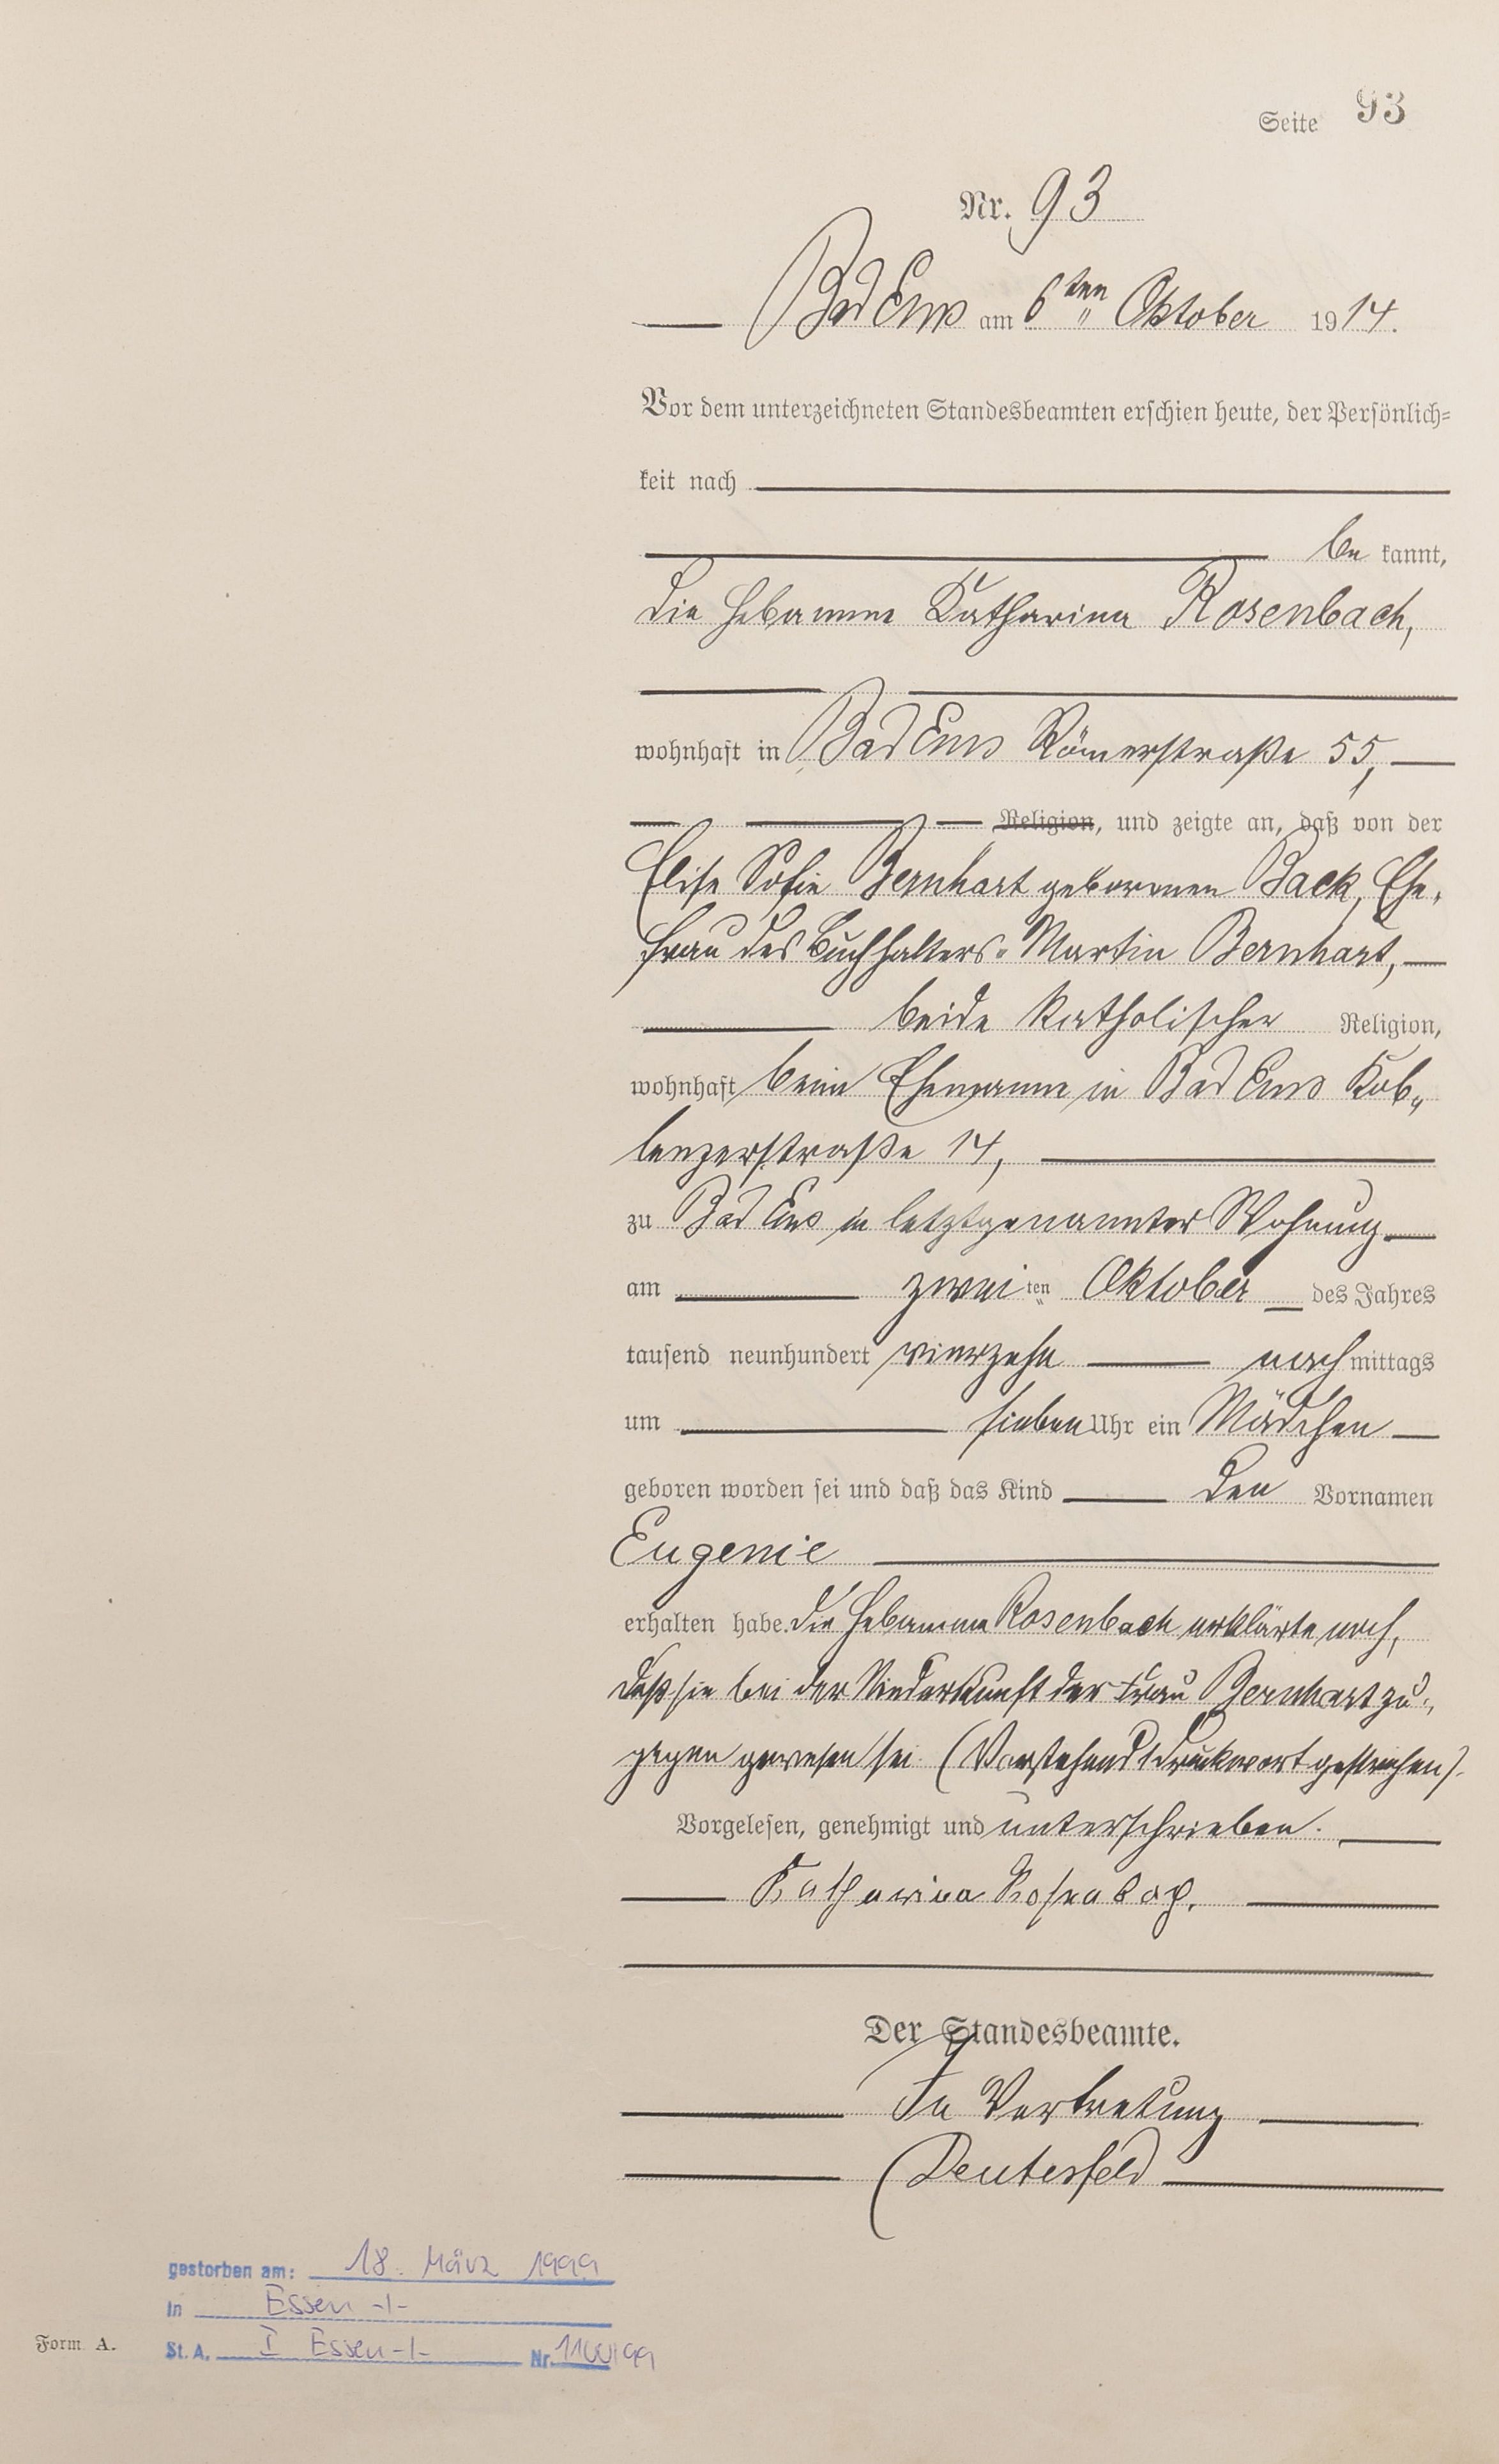 Seite 93
Nr. 93
Bad Ems am 6ten Oktober 1914.
Vor dem unterzeichneten Standesbeamten erschien heute, der Persönlich=
keit nach
be kannt,
die Hebamme Katharina Rosenbach,
wohnhaft in Bad Ems Römerstraße 55,
Religion, und zeigte an, daß von der
Elise Sofie Bernhart geborenen Back, Ehe-
frau des Buchhalters Martin Bernhart,
beide katholischer Religion,
wohnhaft beim Ehemanne in Bad Ems Kob-
lenzerstraße 14,
zu Bad Ems in letztgenannter Wohnung
am zwei ten Oktober des Jahres
tausend neunhundert vierzehn nach mittags
um sieben Uhr ein Mädchen
geboren worden sei und daß das Kind den Vornamen
Eugenie
erhalten habe. Die Hebamme Rosenbach erklärte noch,
daß sie bei der Niederkunft der Frau Bernhart zu-
gegen gewesen sei. (Vorstehend 1 Druckwort gestrichen).
Vorgelesen, genehmigt und unterschrieben.
Katharina Rosenbach.
Der Standesbeamte.
In Vertretung
Deutesfeld
gestorben am: 18. März 1999
In Essen -I-
St. A. I Essen-I- Nr.
Form A.